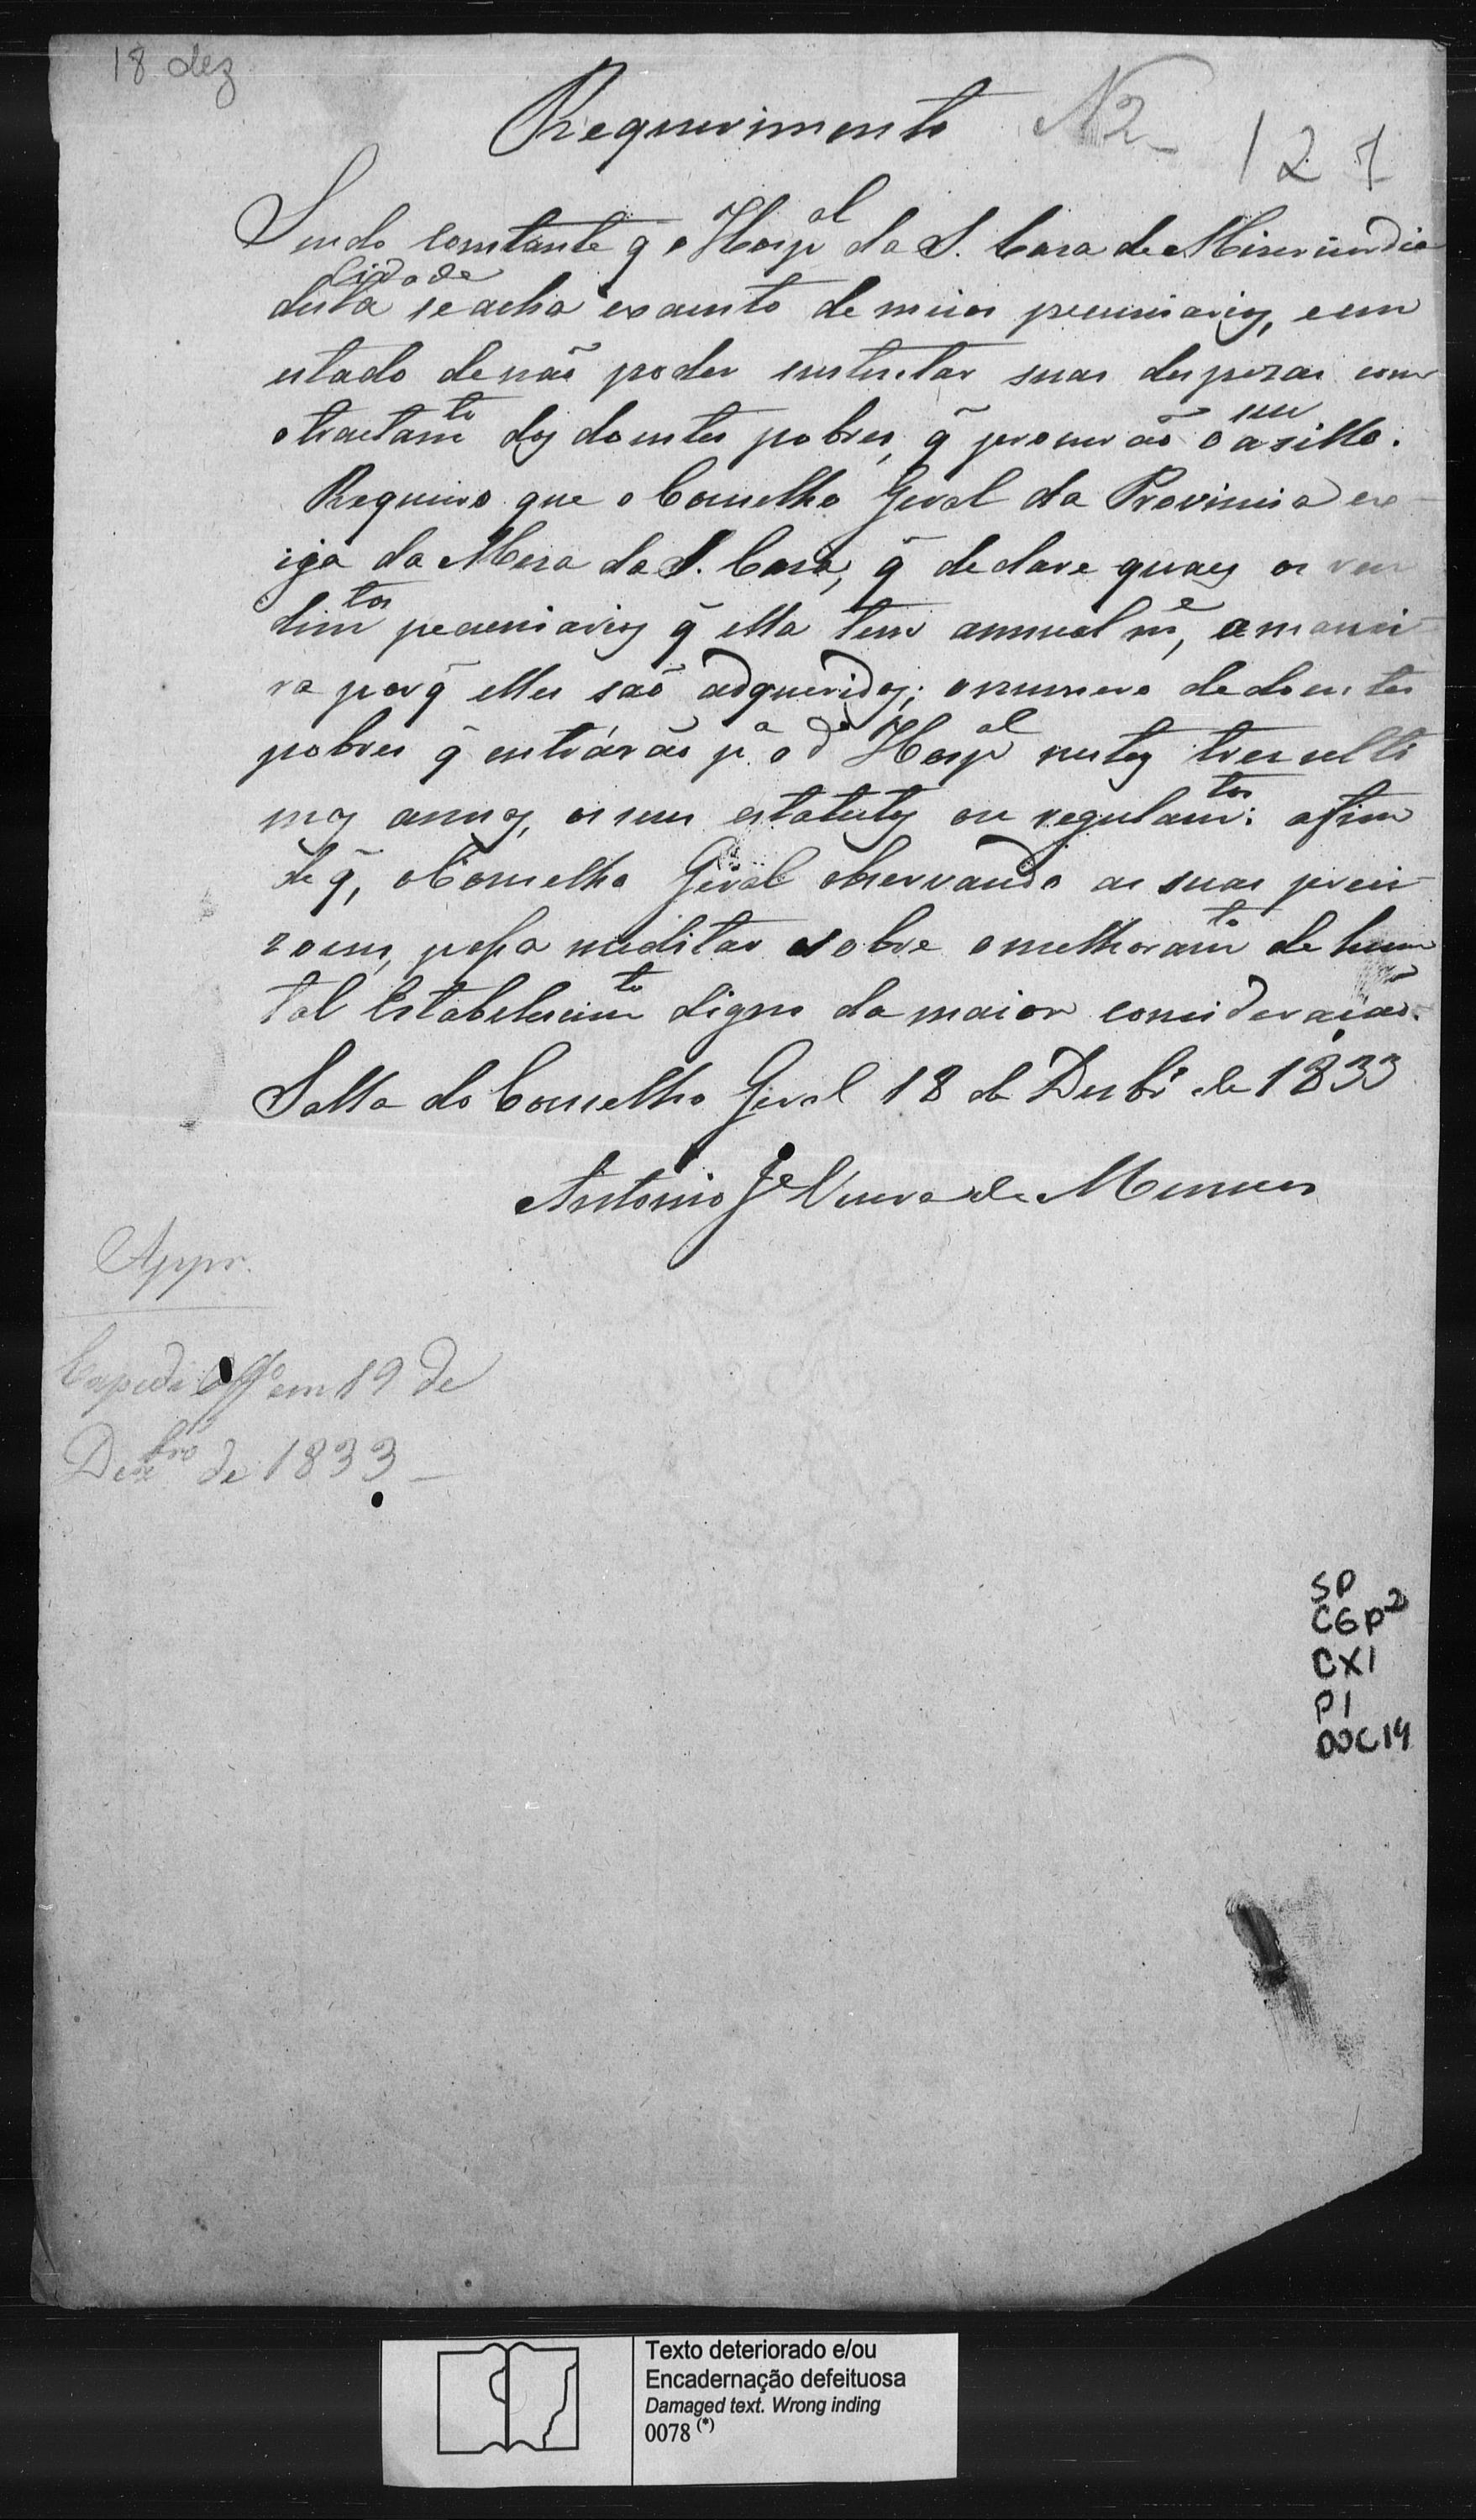 18 dez
Requerimento N 2
127
Sendo constante q̃ o Hosp.al da S. Casa de Misericordia
desta cidade se acha exausto de meios pecuniarios, e em
estado de não poder sustentar suas despezas com
o tractam.to dos doentes pobres, q̃ procurão o seu asillo.
Requeiro que o Conselho Geral da Provincia ex-
iga da Mesa da S. Casa, q̃ declare quaes os ren
dim.tos pecuniarios q̃ ella tem annualm.e, a manei-
ra porq̃ elles são adqueridos; o numero de doentes
pobres q̃ entrárão p.a o d.o Hosp.al nestes tres ulti
mos annos, os seus estatutos ou regulam.tos: afim
de q̃, o Conselho Geral observando as suas preci-
zoens, possa meditar sobre o melhoram.to de hum
tal Estabelecim.to digno da maior consideração.
Salla do Conselho Geral 18 de Dezbr.o de 1833
Antonio J.e de Menezes
Appr.
Expedi Off.o em 19 de
Dez.bro de 1833
SP
CGP2
CX1
P1
DOC14
Texto deteriorado e/ou
Encadernação defeituosa
Damaged text. Wrong inding
0078 (*)